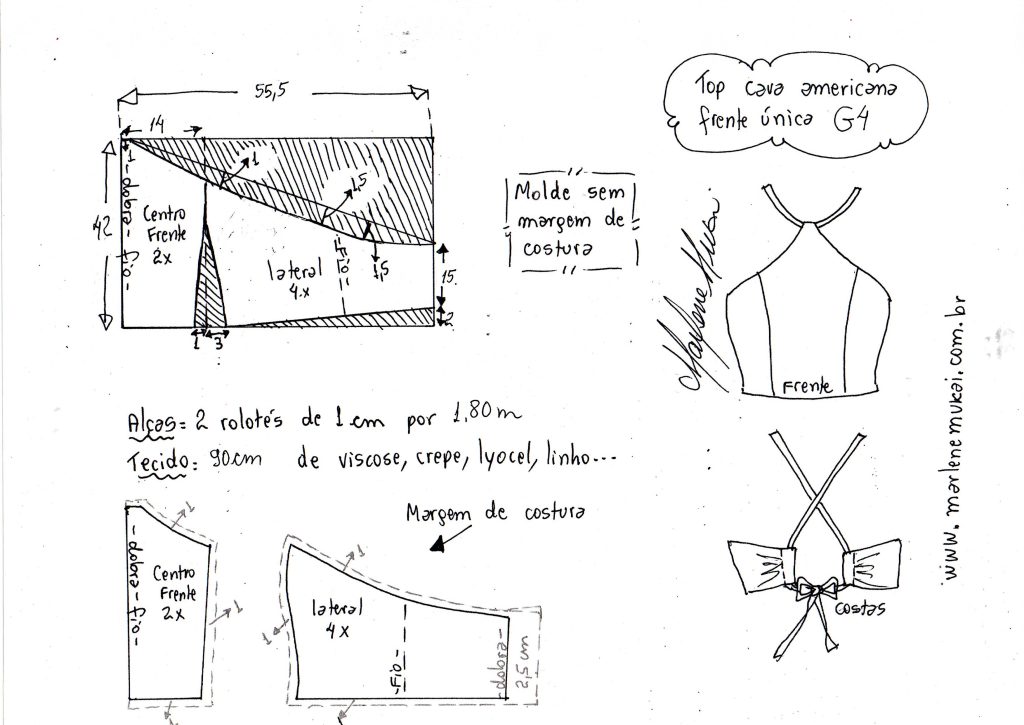 55,5
14
Top cava americana
frente única G4
1
-dobra-fio-
42
Centro
Frente
2x
1
1,5
1,5
lateral
4x
-Fio-
15
2
1
3
Molde sem
margem de
costura
Marlene Mukai
Frente
www.marlenemukai.com.br
Alças= 2 rolotês de 1cm por 1,80m
Tecido: 90cm de viscose, crepe, lyocel, linho...
Margem de costura
1
-dobra-fio-
Centro
Frente
2x
1
1
1
1
lateral
4x
-Fio-
-dobra-
2,5cm
1
costas